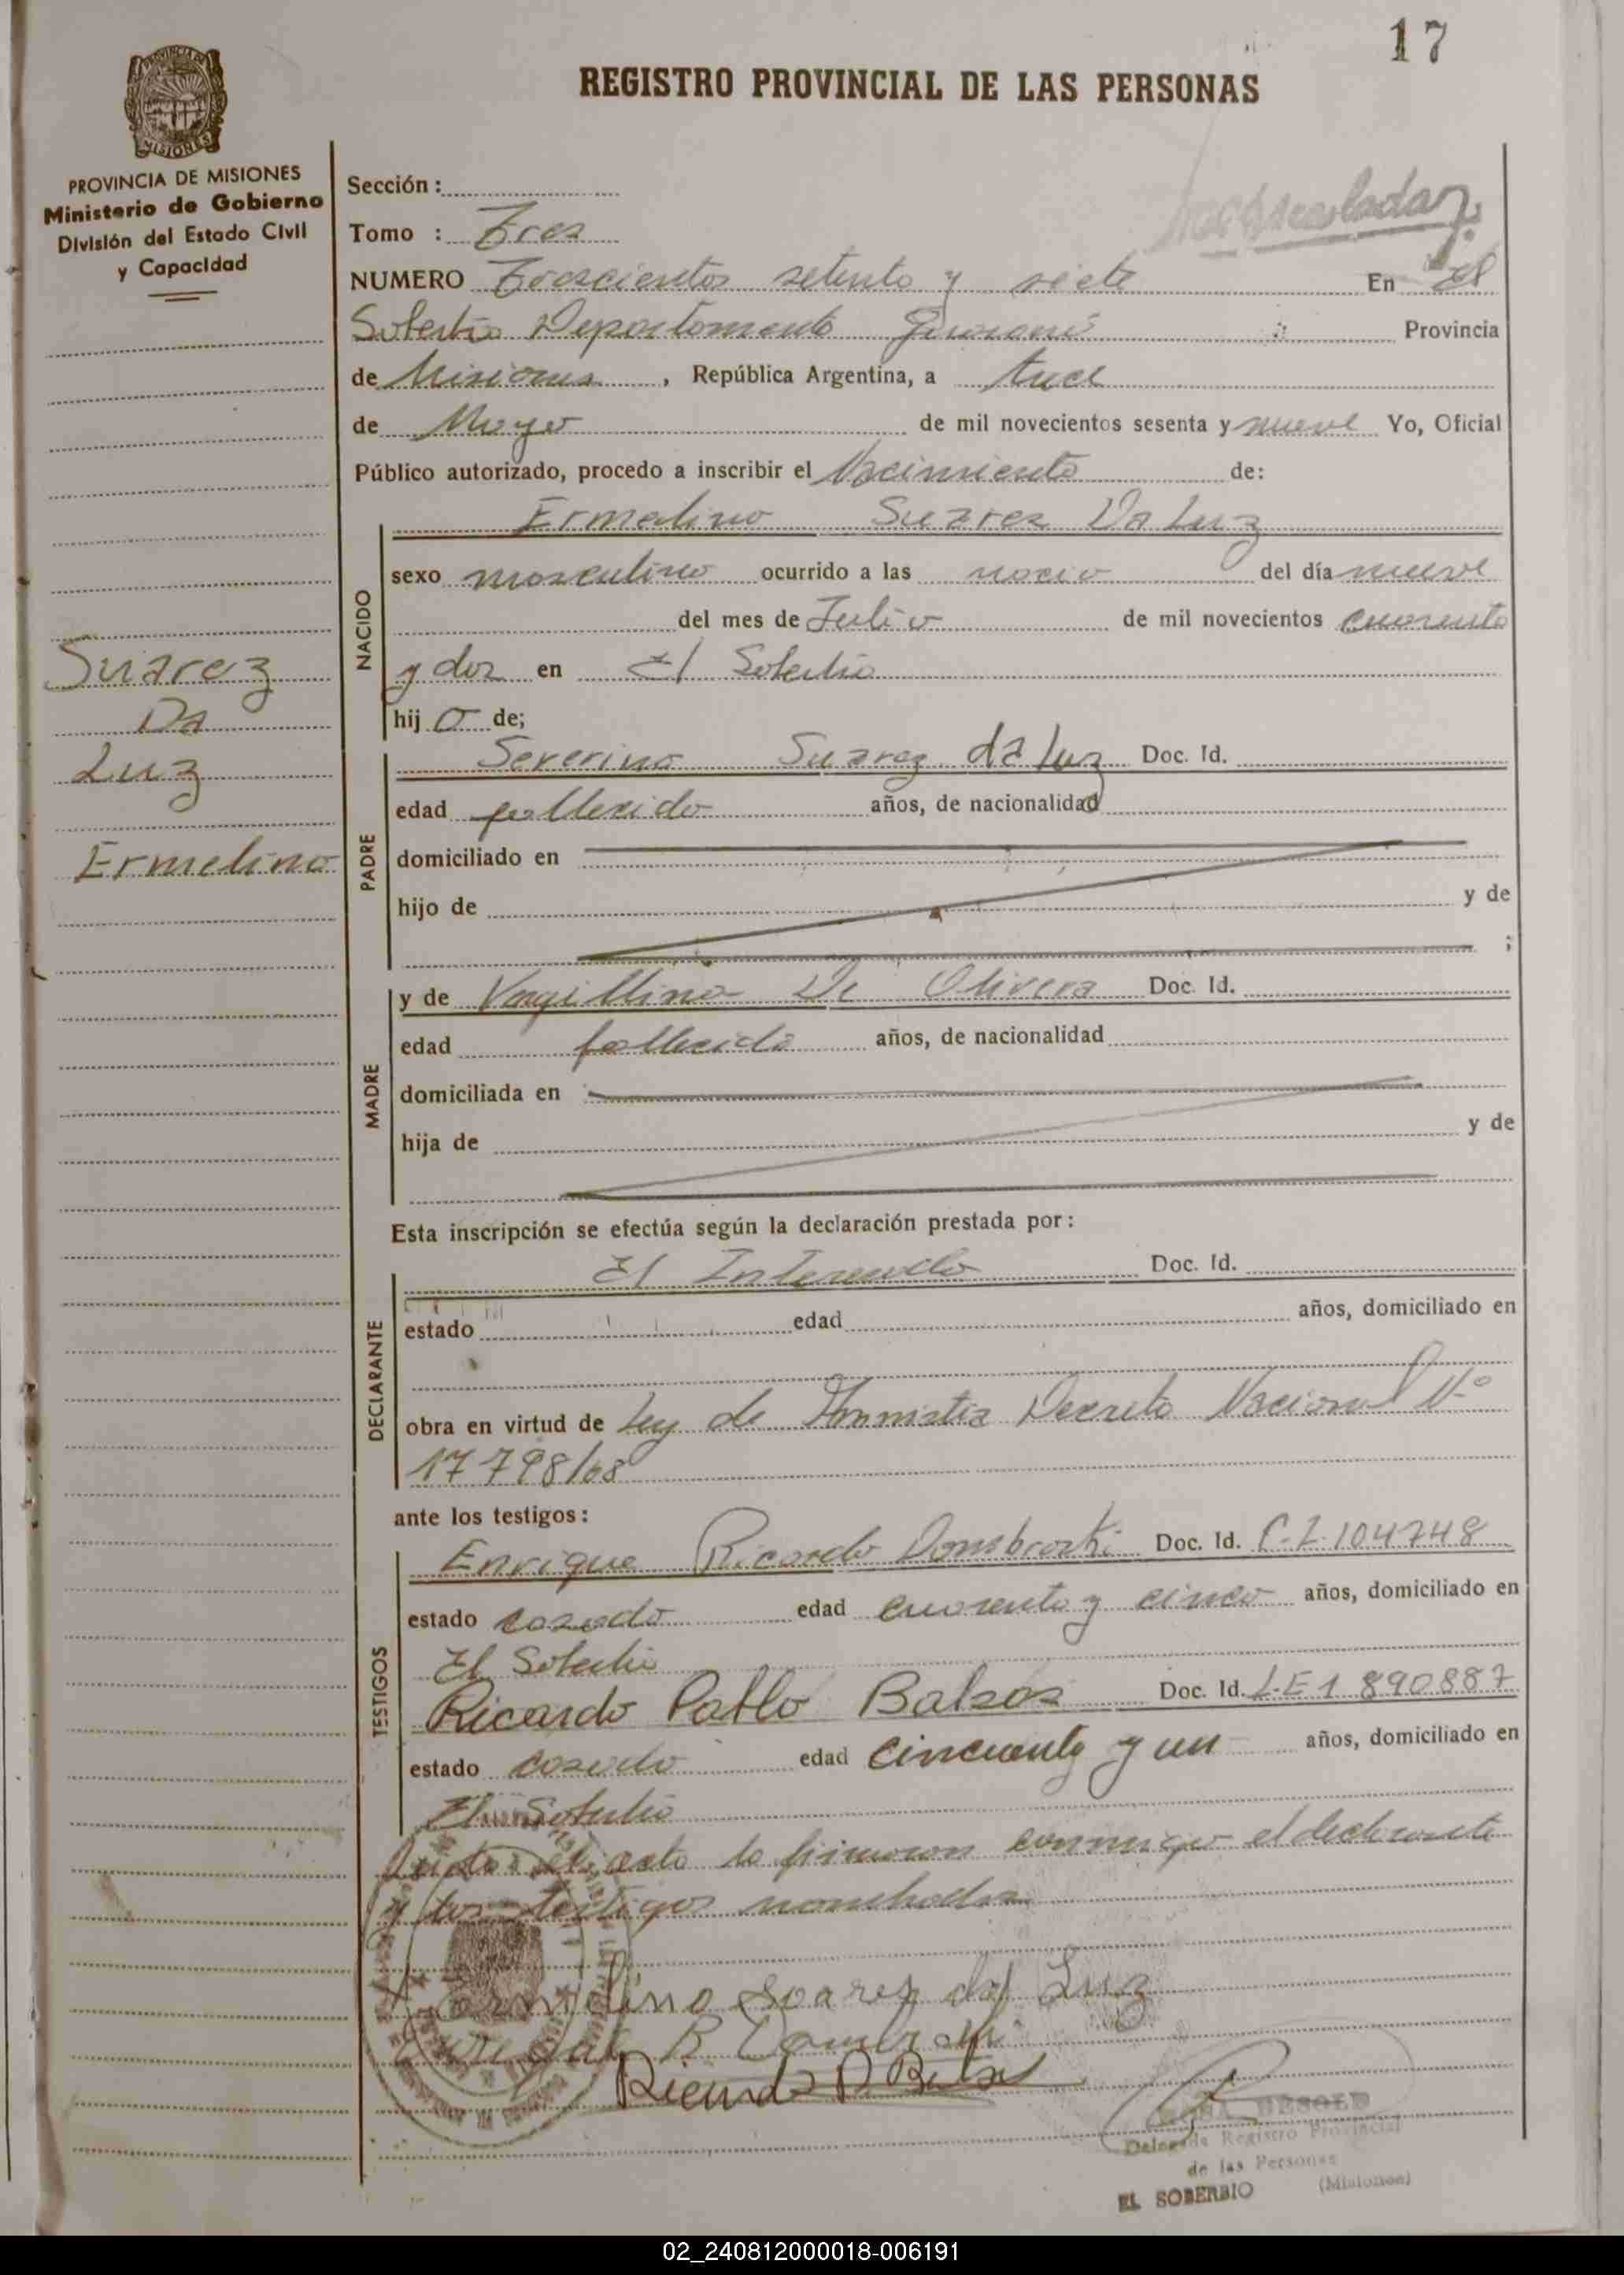 17
REGISTRO PROVINCIAL DE LAS PERSONAS
PROVINCIA DE MISIONES
MISIONES
PROVINCIA DE MISIONES
Ministerio de Gobierno
División del Estado Civil
y Capacidad
Suarez
Da
Luz
Ermelino
Sección :
Tomo : Tres
NUMERO Trescientos setenta y siete En El
Soberbio Departamento Guarani Provincia
de Misiones , República Argentina, a trece
de Mayo de mil novecientos sesenta y nueve Yo, Oficial
Público autorizado, procedo a inscribir el Nacimiento de:
NACIDO
Ermelino Suarez Da Luz
sexo masculino ocurrido a las del día nueve
del mes de Julio de mil novecientos cuarenta
y dos en El Soberbio
hij o de;
PADRE
Severino Suarez da Luz Doc. Id.
edad fallecido años, de nacionalidad
domiciliado en
hijo de y de
;
MADRE
y de De Olivera Doc. Id.
edad fallecida años, de nacionalidad
domiciliada en
hija de y de
Esta inscripción se efectúa según la declaración prestada por:
DECLARANTE
El Interesado Doc. Id.
estado edad años, domiciliado en
obra en virtud de Ley de Amnistia Decreto Nacional Nº
17798/68
ante los testigos:
TESTIGOS
Enrique Ricardo Dombroski Doc. Id. C.I. 104748
estado casado edad cuarenta y cinco años, domiciliado en
El Soberbio
Ricardo Pablo Balsas Doc. Id. L-E 1 890887
estado casado edad cincuenta y un años, domiciliado en
El Soberbio
el acto lo firmaron conmigo el declarante
y los testigos nombrados
Ermelino Soares da Luz
Ricardo P. Balsas
BESOLD
Delegada Registro Provincial
de las Personas
EL SOBERBIO (Misiones)
02_240812000018-006191